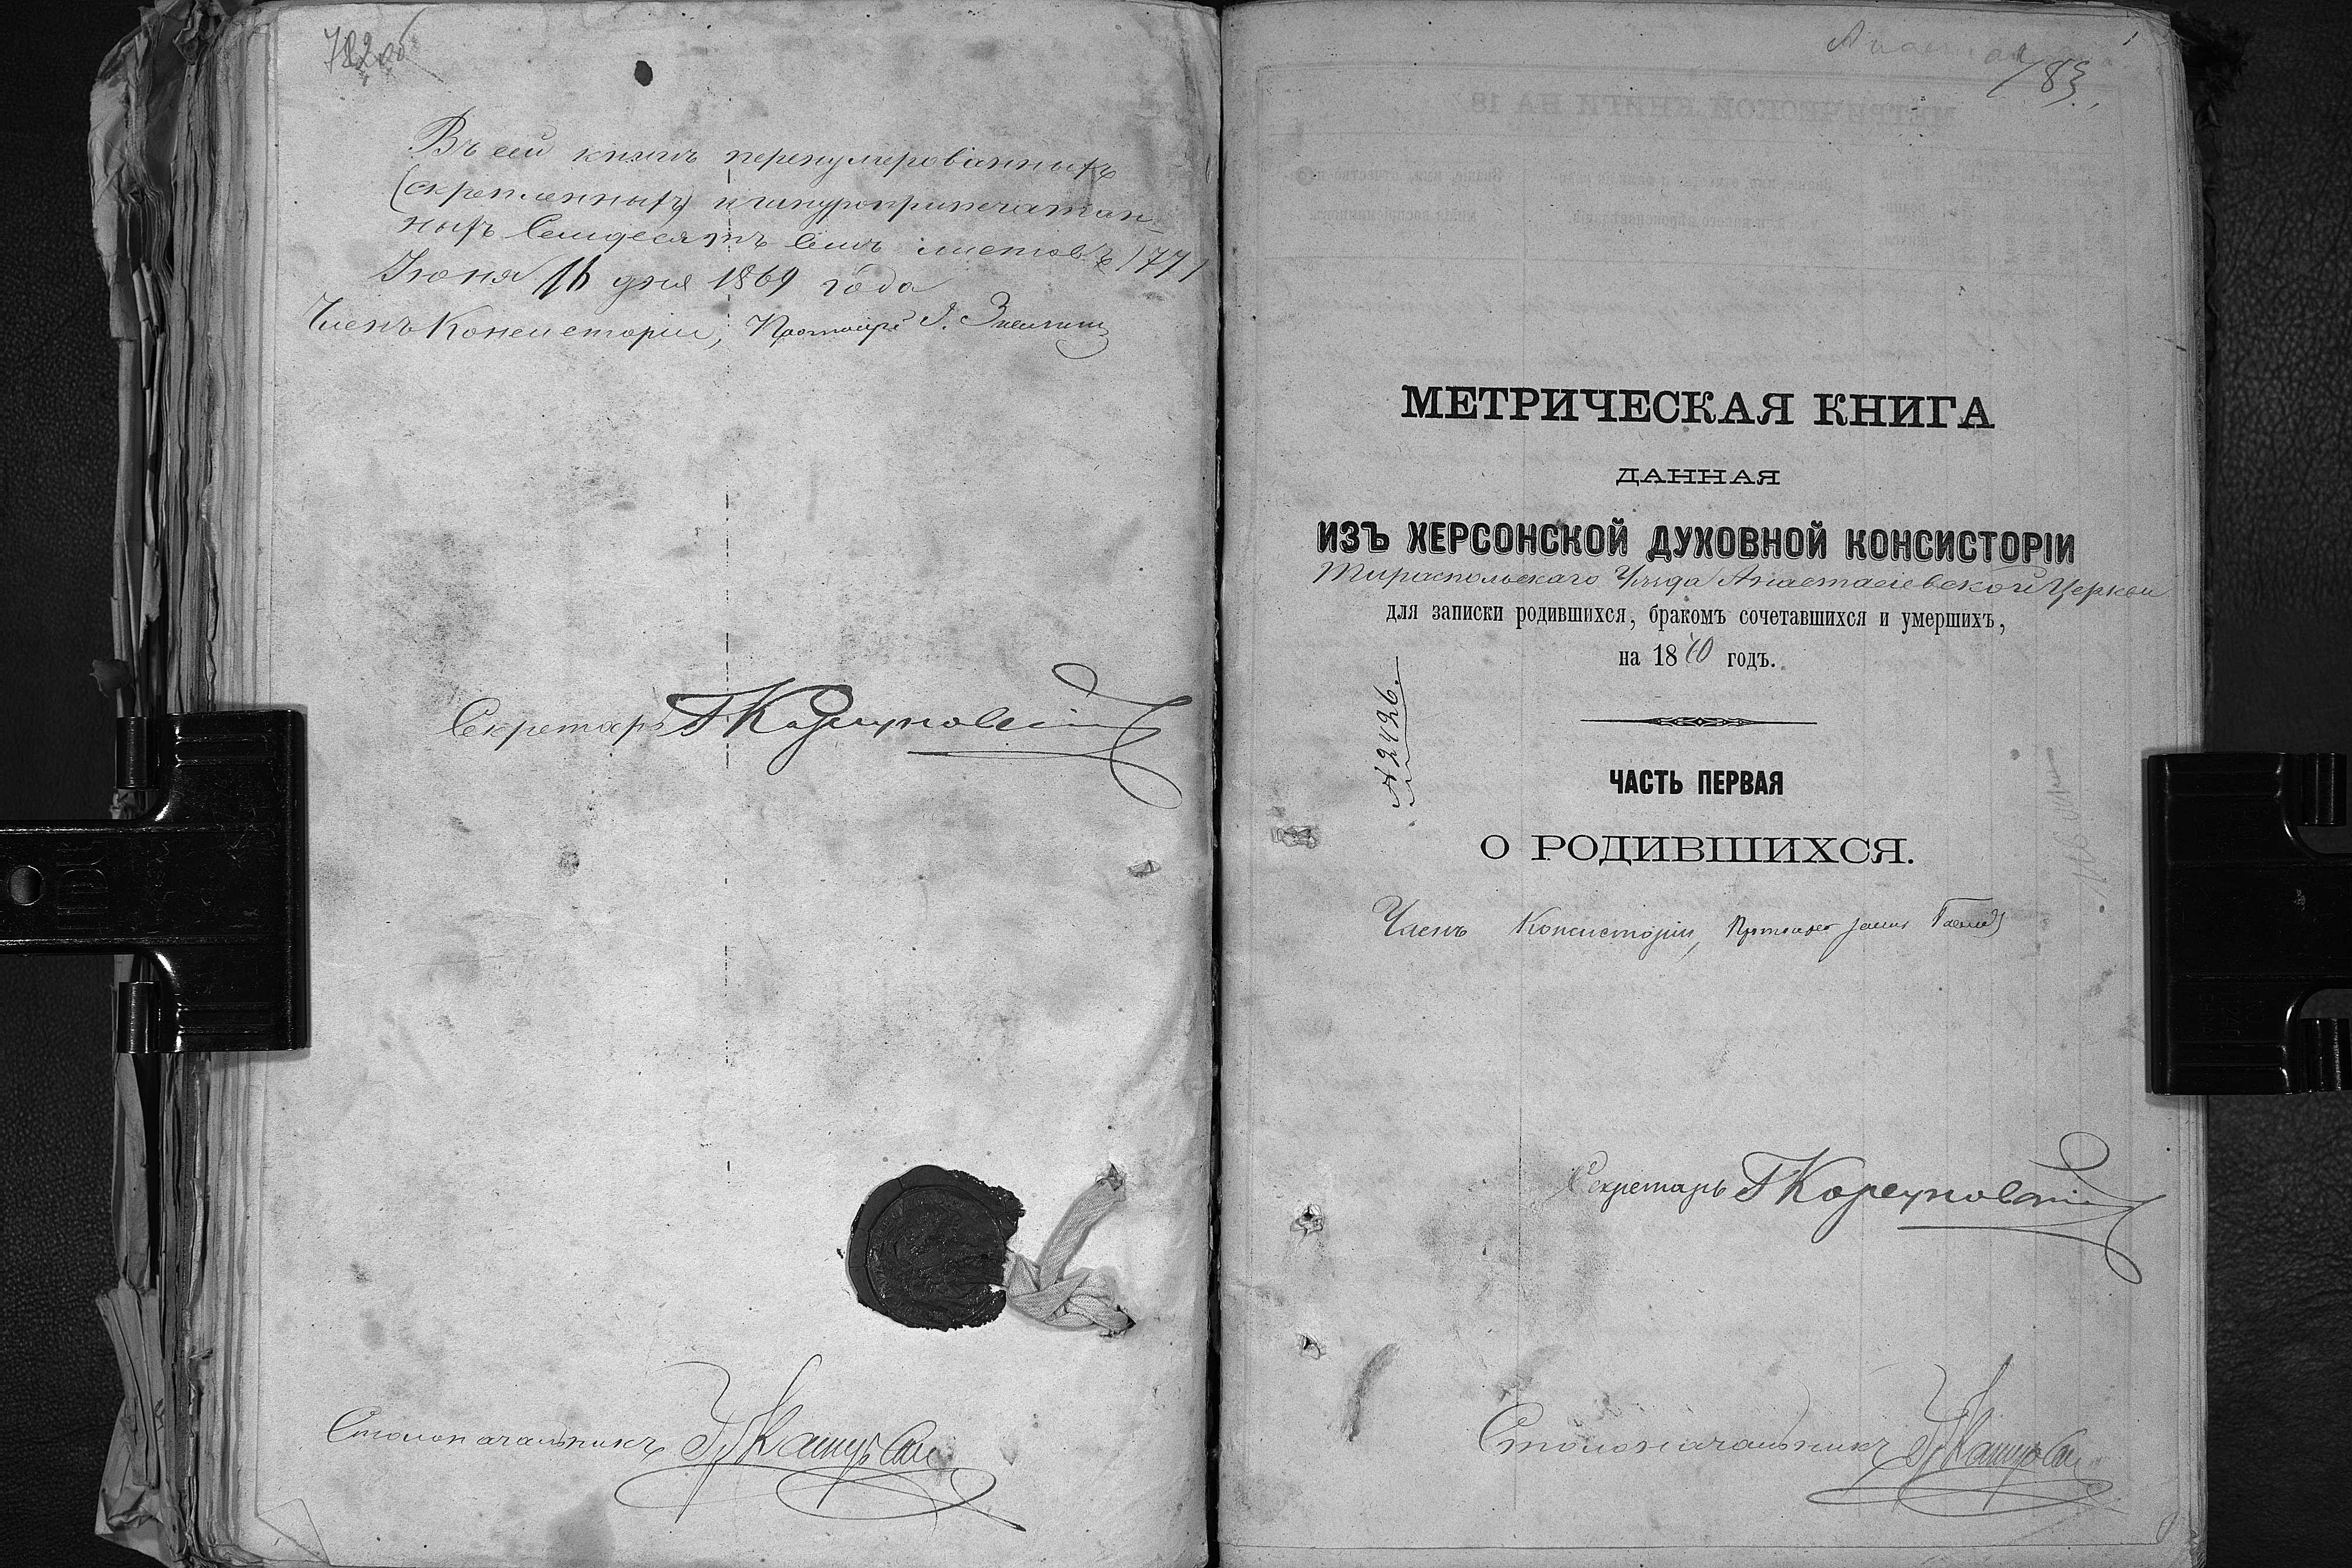 782 об
Въ сей книгѣ перенумерованныхъ
(скрепленныхъ) и шнуроприпечатан-
ныхъ Семдесятъ Семь листовъ /77/
Июня 16 дня 1869 года
Членъ Консисторіи, Протоіерей І.
Секретарь
Столоначальникъ
783.
МЕТРИЧЕСКАЯ КНИГА
ДАННАЯ
ИЗЪ ХЕРСОНСКОЙ ДУХОВНОЙ КОНСИСТОРІИ
Тираспольскаго Уѣзда Анастасіевской Церкви
для записки родившихся, бракомъ сочетавшихся и умершихъ,
на 1870 годъ.
№ 2426.
ЧАСТЬ ПЕРВАЯ
О РОДИВШИХСЯ.
Членъ Консисторіи, Протоіерей
Секретарь
Столоначальникъ